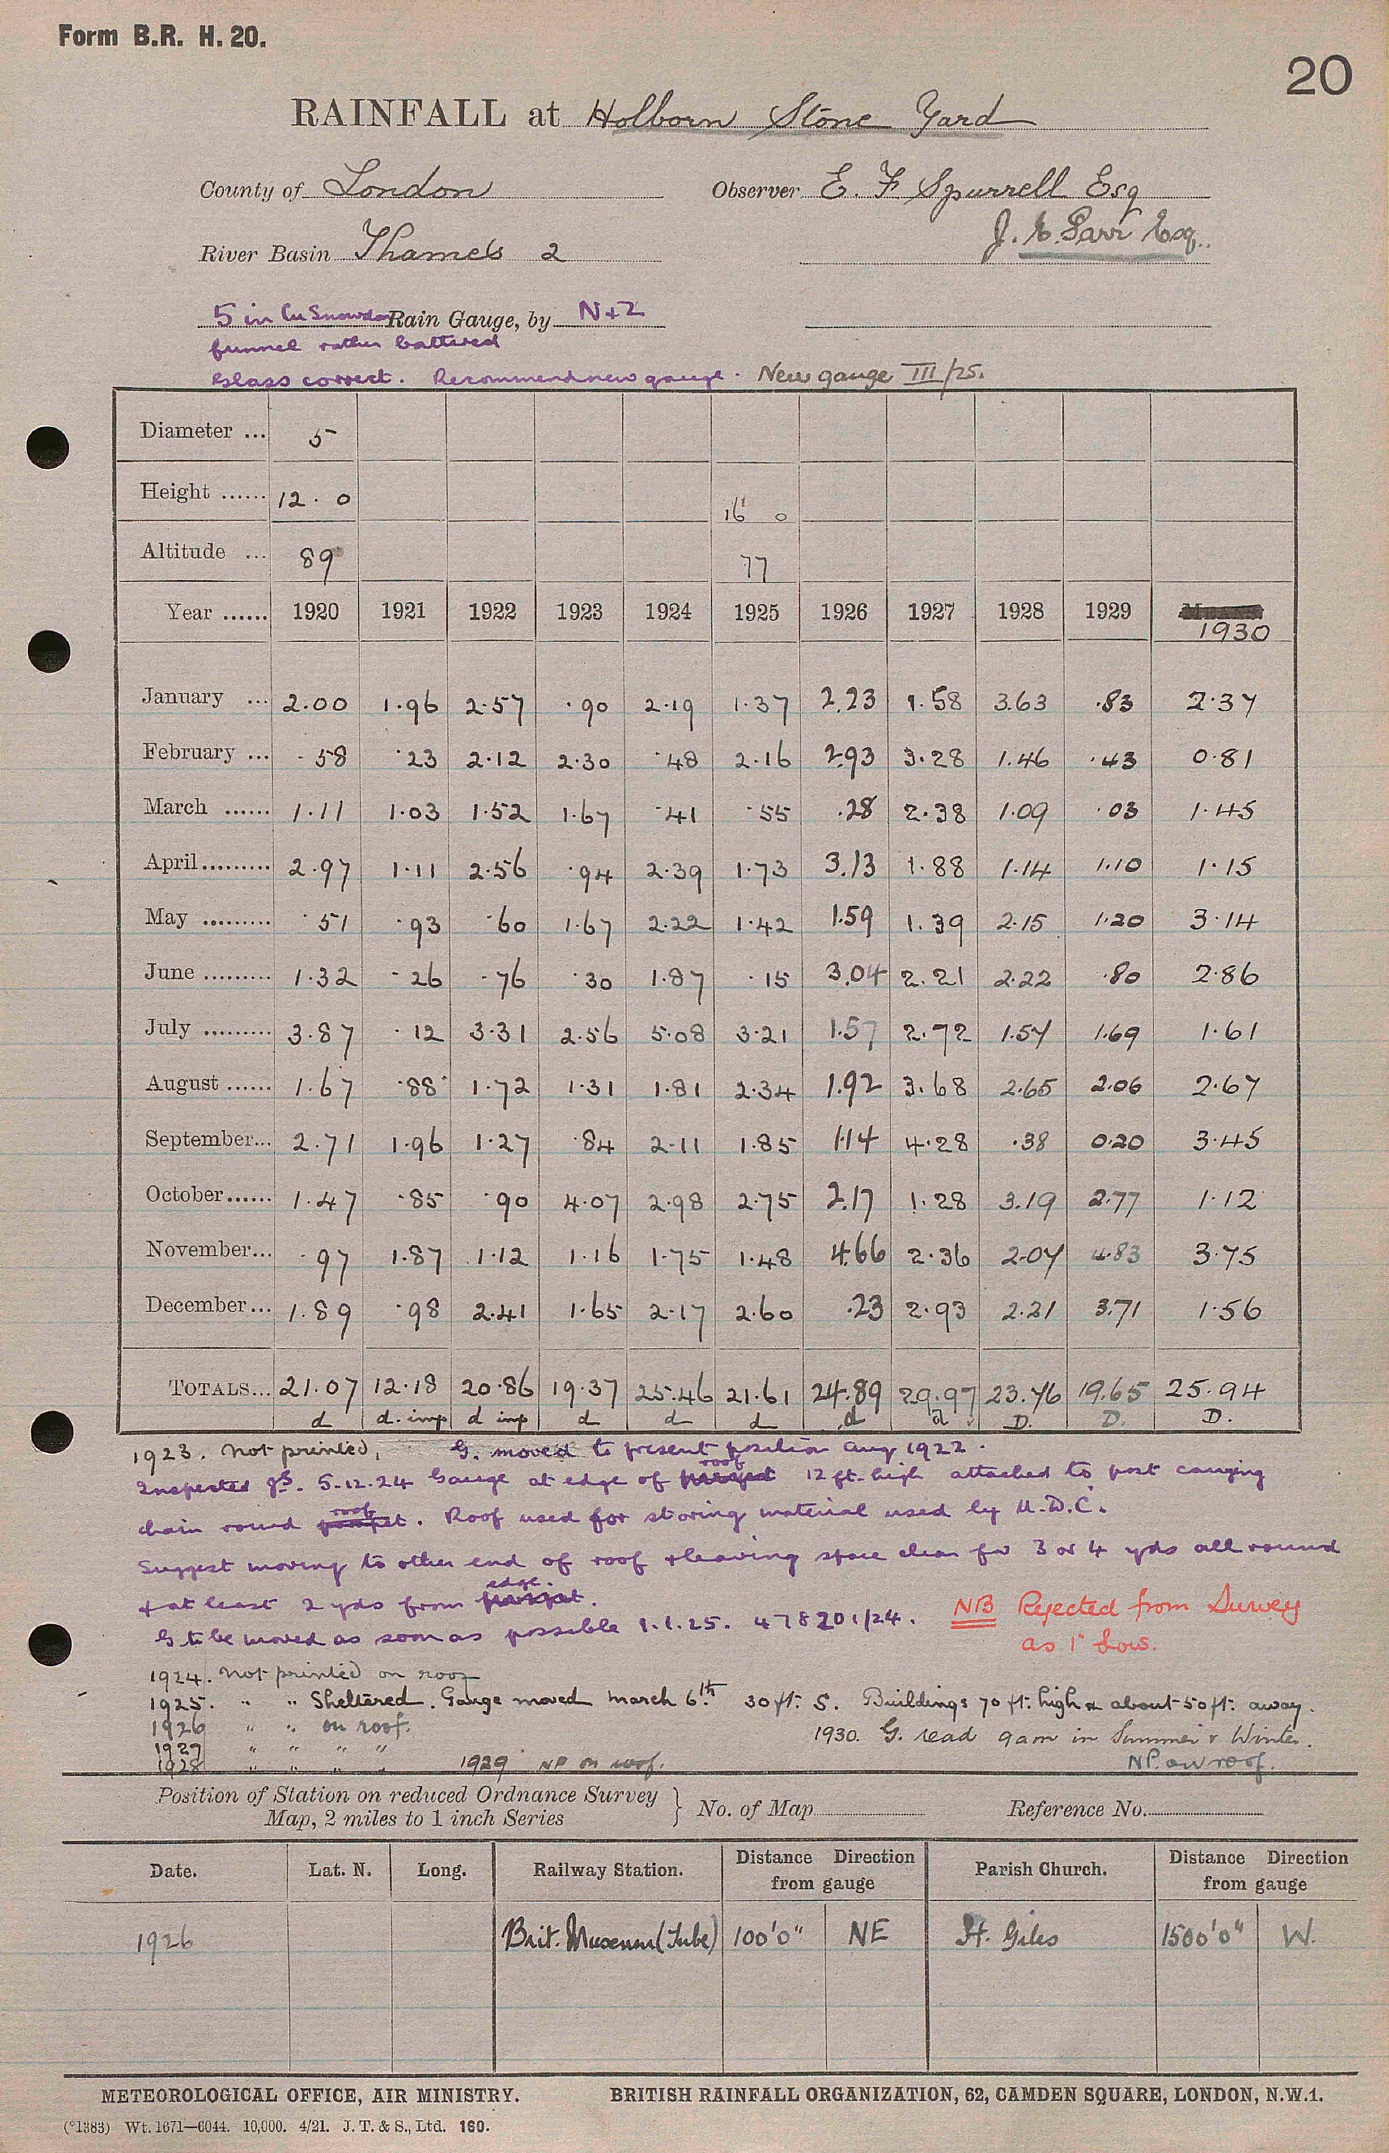 Form B.R. H. 20.
20
RAINFALL at Holborn Stone Yard
County of London Observer E. F. Spurrell Esq
J. E. Parr Esq.
River Basin Thames 2
5 in Cu Snowdon Rain Gauge, by N+Z
funnel rather battered
Glass correct. Recommend new gauge. New gauge III/25.
Diameter ... 5
Height ...... 12 . 0 16 0
Altitude ... 89 77
Year ...... 1920 1921 1922 1923 1924 1925 1926 1927 1928 1929 1930
January ... 2.00 1.96 2.57 .90 2.19 1.37 2.23 1.58 3.63 .83 2.37
February ... .58 .23 2.12 2.30 .48 2.16 2.93 3.28 1.46 .43 0.81
March ...... 1.11 1.03 1.52 1.67 .41 .55 .28 2.38 1.09 .03 1.45
April ......... 2.97 1.11 2.56 .94 2.39 1.73 3.13 1.88 1.14 1.10 1.15
May ......... .51 .93 .60 1.67 2.22 1.42 1.59 1.39 2.15 1.20 3.14
June ......... 1.32 .26 .76 .30 1.87 .15 3.04 2.21 2.22 .80 2.86
July ......... 3.87 .12 3.31 2.56 5.08 3.21 1.57 2.72 1.57 1.69 1.61
August ...... 1.67 .88 1.72 1.31 1.81 2.34 1.92 3.68 2.65 2.06 2.67
September... 2.71 1.96 1.27 .84 2.11 1.85 1.14 4.28 .38 0.20 3.45
October...... 1.47 .85 .90 4.07 2.98 2.75 2.17 1.28 3.19 2.77 1.12
November... .97 1.87 1.12 1.16 1.75 1.48 4.66 2.36 2.07 4.83 3.75
December... 1.89 .98 2.41 1.65 2.17 2.60 .23 2.93 2.21 3.71 1.56
TOTALS... 21.07 12.18 20.86 19.37 25.46 21.61 24.89 29.97 23.76 19.65 25.94
d d. imp d imp d d d d d D. D. D.
1923. Not printed, G. moved to present position Aug 1922.
roof
Inspected 5.12.24 Gauge at edge of 12 ft. high attached to post carrying
roof
chain round . Roof used for storing material used by U.D.C.
Suggest moving to other end of roof + leaving space clear for 3 or 4 yds all round
edge.
+ at least 2 yds from
G to be moved as soon as possible 1.1.25. 478201/24. NB Rejected from Survey
as 1" low.
1924. Not printed on roof
1925. " " Sheltered. Gauge moved March 6th. 30 ft. S. Buildings 70 ft. high & about 50 ft. away.
1926 " " on roof. 1930. G. read 9am in Summer & Winter.
1927 " " " "
1928 " " " " 1929 NP on roof. NP. on roof.
Position of Station on reduced Ordnance Survey
Map, 2 miles to 1 inch Series } No. of Map Reference No.
Date. Lat. N. Long. Railway Station. Distance Direction from gauge Parish Church. Distance Direction from gauge
1926 Brit. Museum (Tube) 100'0" NE St. Giles 1500'0" W.
METEOROLOGICAL OFFICE, AIR MINISTRY. BRITISH RAINFALL ORGANIZATION, 62, CAMDEN SQUARE, LONDON, N.W.1.
(*1383) Wt. 1671—6044. 10,000. 4/21. J. T. & S., Ltd. 160.